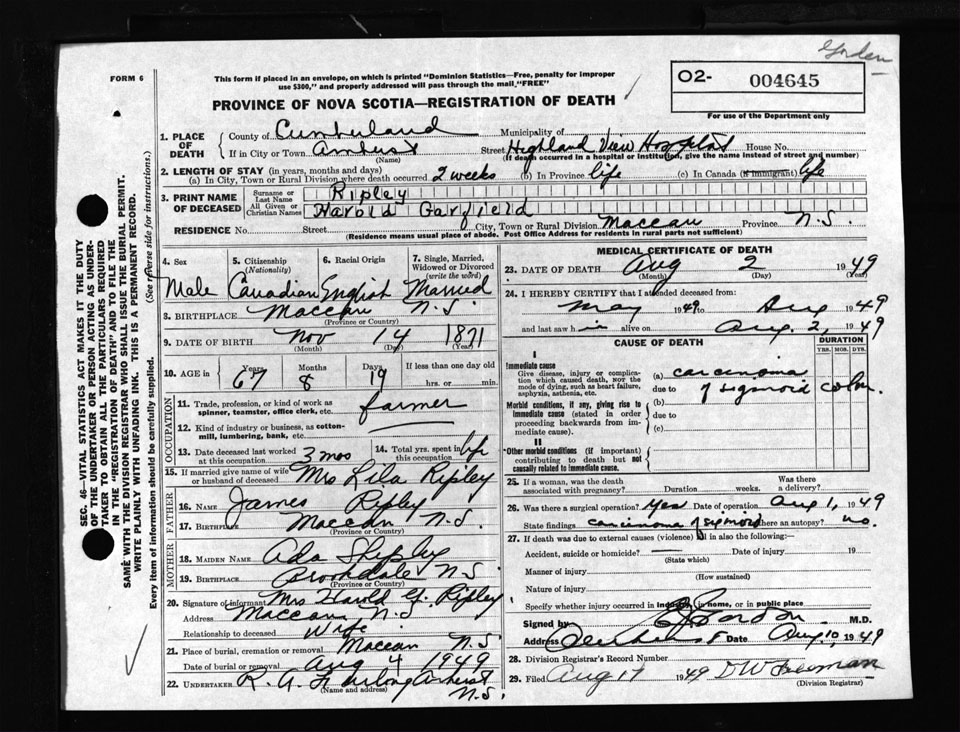 Gordon
FORM 6
This form if placed in an envelope, on which is printed "Dominion Statistics—Free, penalty for improper
use $300," and properly addressed will pass through the mail "FREE"
O2- 004645
For use of the Department only
PROVINCE OF NOVA SCOTIA—REGISTRATION OF DEATH
1. PLACE OF DEATH
County of Cumberland Municipality of
If in City or Town Amherst Street Highland View Hospital House No.
(Name) (If death occurred in a hospital or institution, give the name instead of street and number)
2. LENGTH OF STAY (in years, months and days)
(a) In City, Town or Rural Division where death occurred 2 weeks (b) In Province life (c) In Canada (if immigrant) life
3. PRINT NAME OF DECEASED
Surname or Last Name Ripley
All Given or Christian Names Harold Garfield
RESIDENCE No. Street City, Town or Rural Division Maccan Province N.S.
(Residence means usual place of abode. Post Office Address for residents in rural parts not sufficient)
4. Sex 5. Citizenship (Nationality) 6. Racial Origin 7. Single, Married, Widowed or Divorced (write the word)
Male Canadian English Married
8. BIRTHPLACE Maccan N.S.
(Province or Country)
9. DATE OF BIRTH Nov 14 1881
(Month) (Day) (Year)
10. AGE in Years Months Days If less than one day old
67 8 19 hrs. or min.
OCCUPATION
11. Trade, profession or kind of work as spinner, teamster, office clerk, etc. farmer
12. Kind of industry or business, as cotton-mill, lumbering, bank, etc.
13. Date deceased last worked at this occupation 3 mos 14. Total yrs. spent in this occupation life
15. If married give name of wife or husband of deceased Mrs Lila Ripley
FATHER
16. NAME James Ripley
17. BIRTHPLACE Maccan N.S.
MOTHER
18. MAIDEN NAME Ada Shipley
19. BIRTHPLACE Brookdale N.S.
(Province or Country)
20. Signature of informant Mrs Harold G. Ripley
Address Maccan N.S.
Relationship to deceased Wife
21. Place of burial, cremation or removal Maccan N.S
Date of burial or removal Aug 4 1949
22. UNDERTAKER R. A. Furlong Amherst
(Name and address) N.S.
MEDICAL CERTIFICATE OF DEATH
23. DATE OF DEATH Aug 2 1949
(Month) (Day) (Year)
24. I HEREBY CERTIFY that I attended deceased from:
May 1949 to Aug 1949
and last saw h im alive on Aug. 2, 1949
CAUSE OF DEATH DURATION
YRS. MOS. DYS.
I
Immediate cause
Give disease, injury or complication which caused death, NOT the mode of dying, such as heart failure, asphyxia, asthenia, etc.
(a) carcinoma
due to of sigmoid colon
Morbid conditions, if any, giving rise to immediate cause (stated in order proceeding backwards from immediate cause).
(b)
due to
(c)
II
Other morbid conditions (if important) contributing to death but not causally related to immediate cause.
25. If a woman, was the death associated with pregnancy? Duration weeks. Was there a delivery?
26. Was there a surgical operation? Yes Date of operation Aug 1, 1949
State findings carcinoma of sigmoid Was there an autopsy? no.
27. If death was due to external causes (violence) fill in also the following:
Accident, suicide or homicide? — Date of injury 19
(State which)
Manner of injury
(How sustained)
Nature of injury
Specify whether injury occurred in industry, in home, or in public place
Signed by M.D.
Address Amherst Date Aug 10, 1949
28. Division Registrar's Record Number
29. Filed Aug 17 1949
(Division Registrar)
SEC. 46—VITAL STATISTICS ACT MAKES IT THE DUTY
OF THE UNDERTAKER OR PERSON ACTING AS UNDER-
TAKER TO OBTAIN ALL THE PARTICULARS REQUIRED
IN THE "REGISTRATION OF DEATH" AND TO FILE THE
SAME WITH THE DIVISION REGISTRAR WHO SHALL ISSUE THE BURIAL PERMIT.
WRITE PLAINLY WITH UNFADING INK. THIS IS A PERMANENT RECORD.
Every item of information should be carefully supplied. (See reverse side for instructions.)